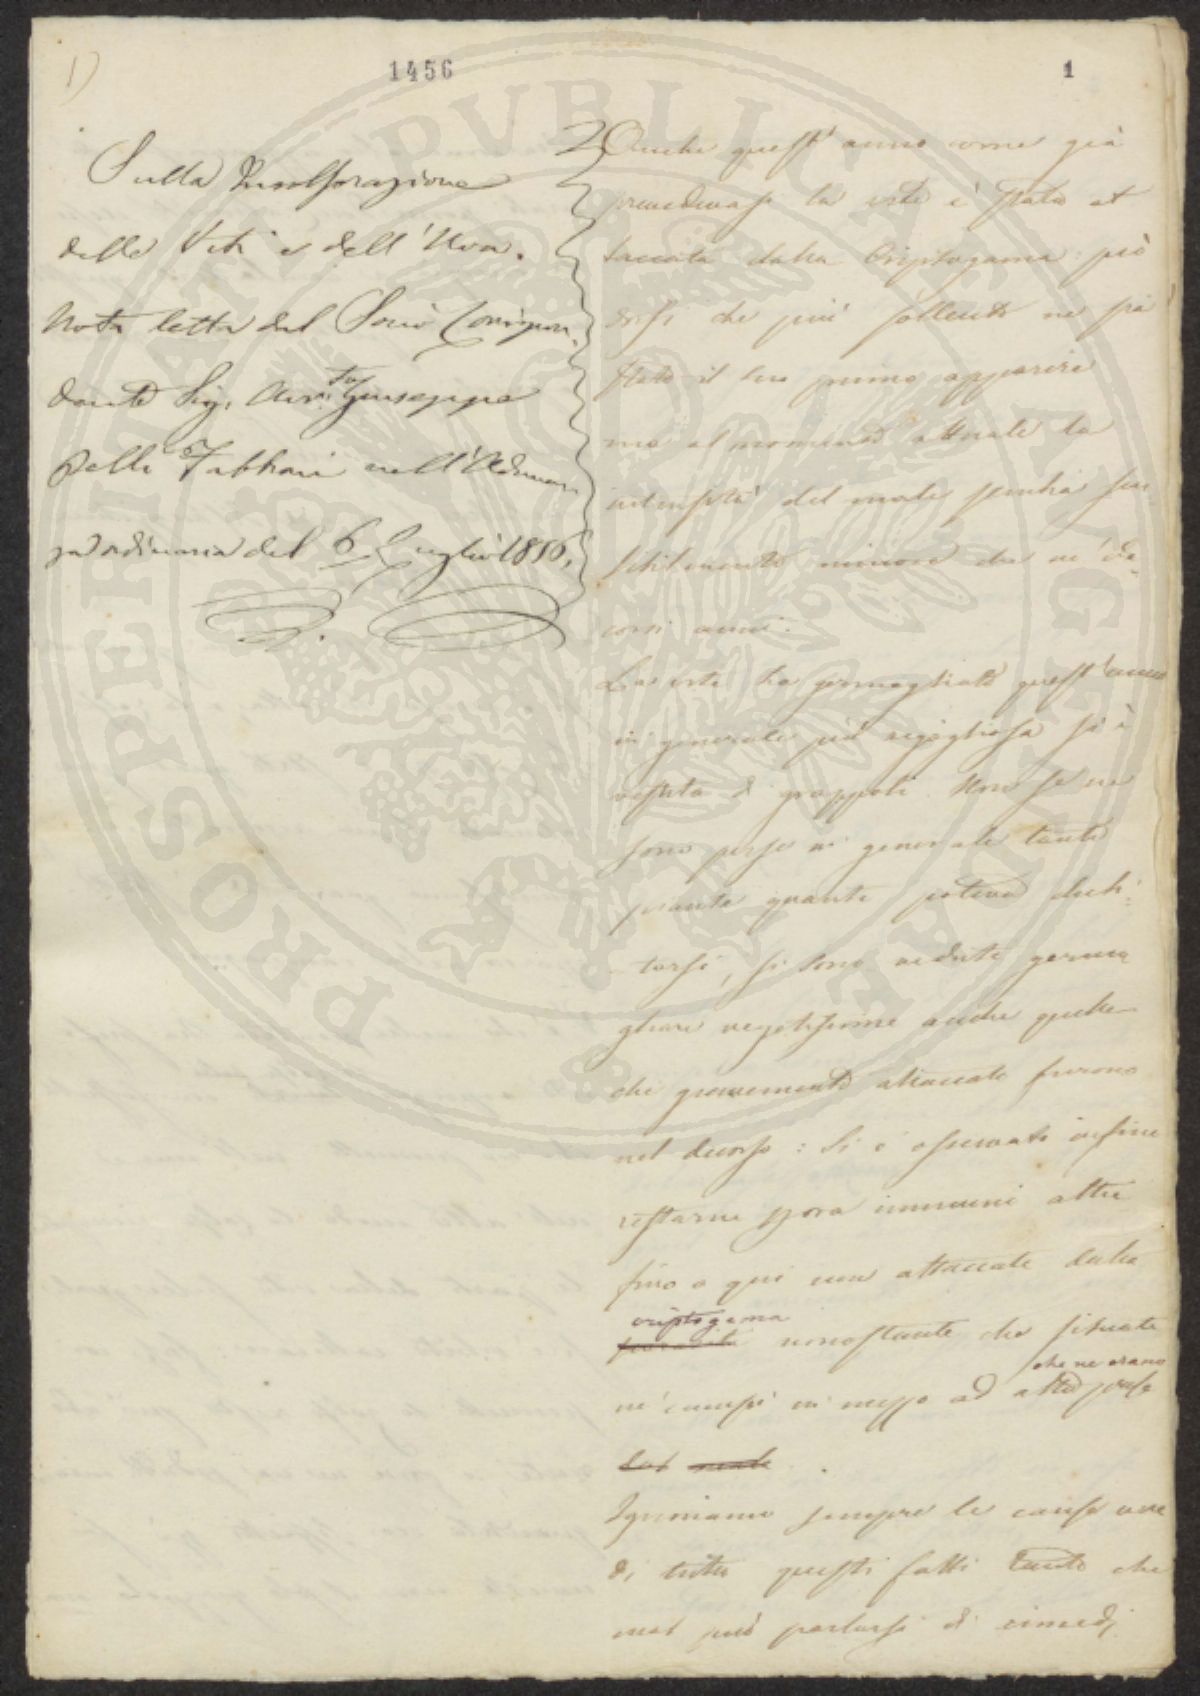 1)
1456
1
Sulla Insolforazione
delle Viti e dell'Uva.
Nota letta dal Socio Corrispon=
dente Sig. Avv.to Giuseppe
Delle Fabbrai nell'Adunan
za ordinaria del 6. Luglio 1856,
Anche quest'anno come già
la vite è stata at
taccata dalla Criptogama: può
dirsi che più sollecito ne sia
stato il suo primo apparire
ma al momento attuale la
intensità del male sembra sen
sibilmente minore che ne' de=
corsi anni.
La vite ha germogliato quest'anno
in generale più rigogliosa si è
vestita di grappoli. Non se ne
sono perse in generale tante
piante quante poteva dubi=
tarsi, si sono vedute germo
gliare vegetissime anche quelle
che gravemente attaccate furono
nel decorso: Si è osservato infine
restarne ora immuni altre
fino a qui non attaccate dalla
criptogama
nonostante che situate
che ne erano
ne' campi in mezzo ad altre
del male.
Ignoriamo sempre le cause vere
di tutti questi fatti tanto che
mal può parlarsi di rimedj
PROSPERITATI PVBLICAE AVGENDAE